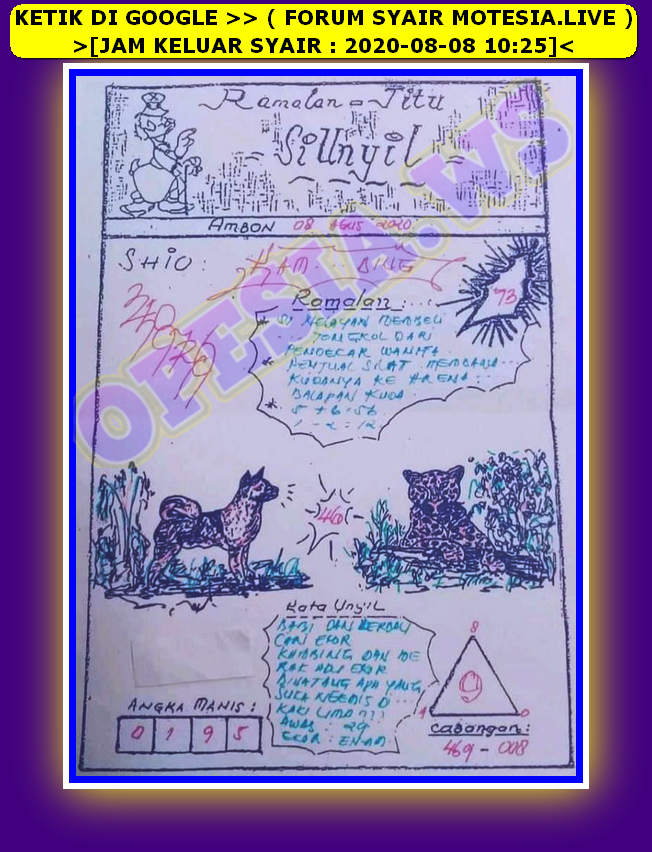 KETIK DI GOOGLE >> ( FORUM SYAIR MOTESIA.LIVE )
>[JAM KELUAR SYAIR : 2020-08-08 10:25]<
Ramalan = Jitu
- Si Unyil -
AMBON 08 AGUS 2020
SHIO : KAM BING
Ramalan :
73
* SI NELAYAN MEMBELI
TONGKOL DARI
PENDEKAR WANITA
* PENJUAL SILAT MEMBAWA
KUDANYA KE ARENA
BALAPAN KUDA
* 5 + 6 = 56
1 - 2 = 12
OFESIA.WS
46
Kata Unyil
BABI DAN KERBAU
CARI EKOR
KAMBING DAN ME
RAK ADU EKOR
BINATANG APA YANG
SUKA NGEMIS D
KAKI LIMA ???
AWAS : 29
EKOR : ENAM
8
9
4 0
ANGKA MANIS :
0 1 9 5
Cabangan :
469 - 008